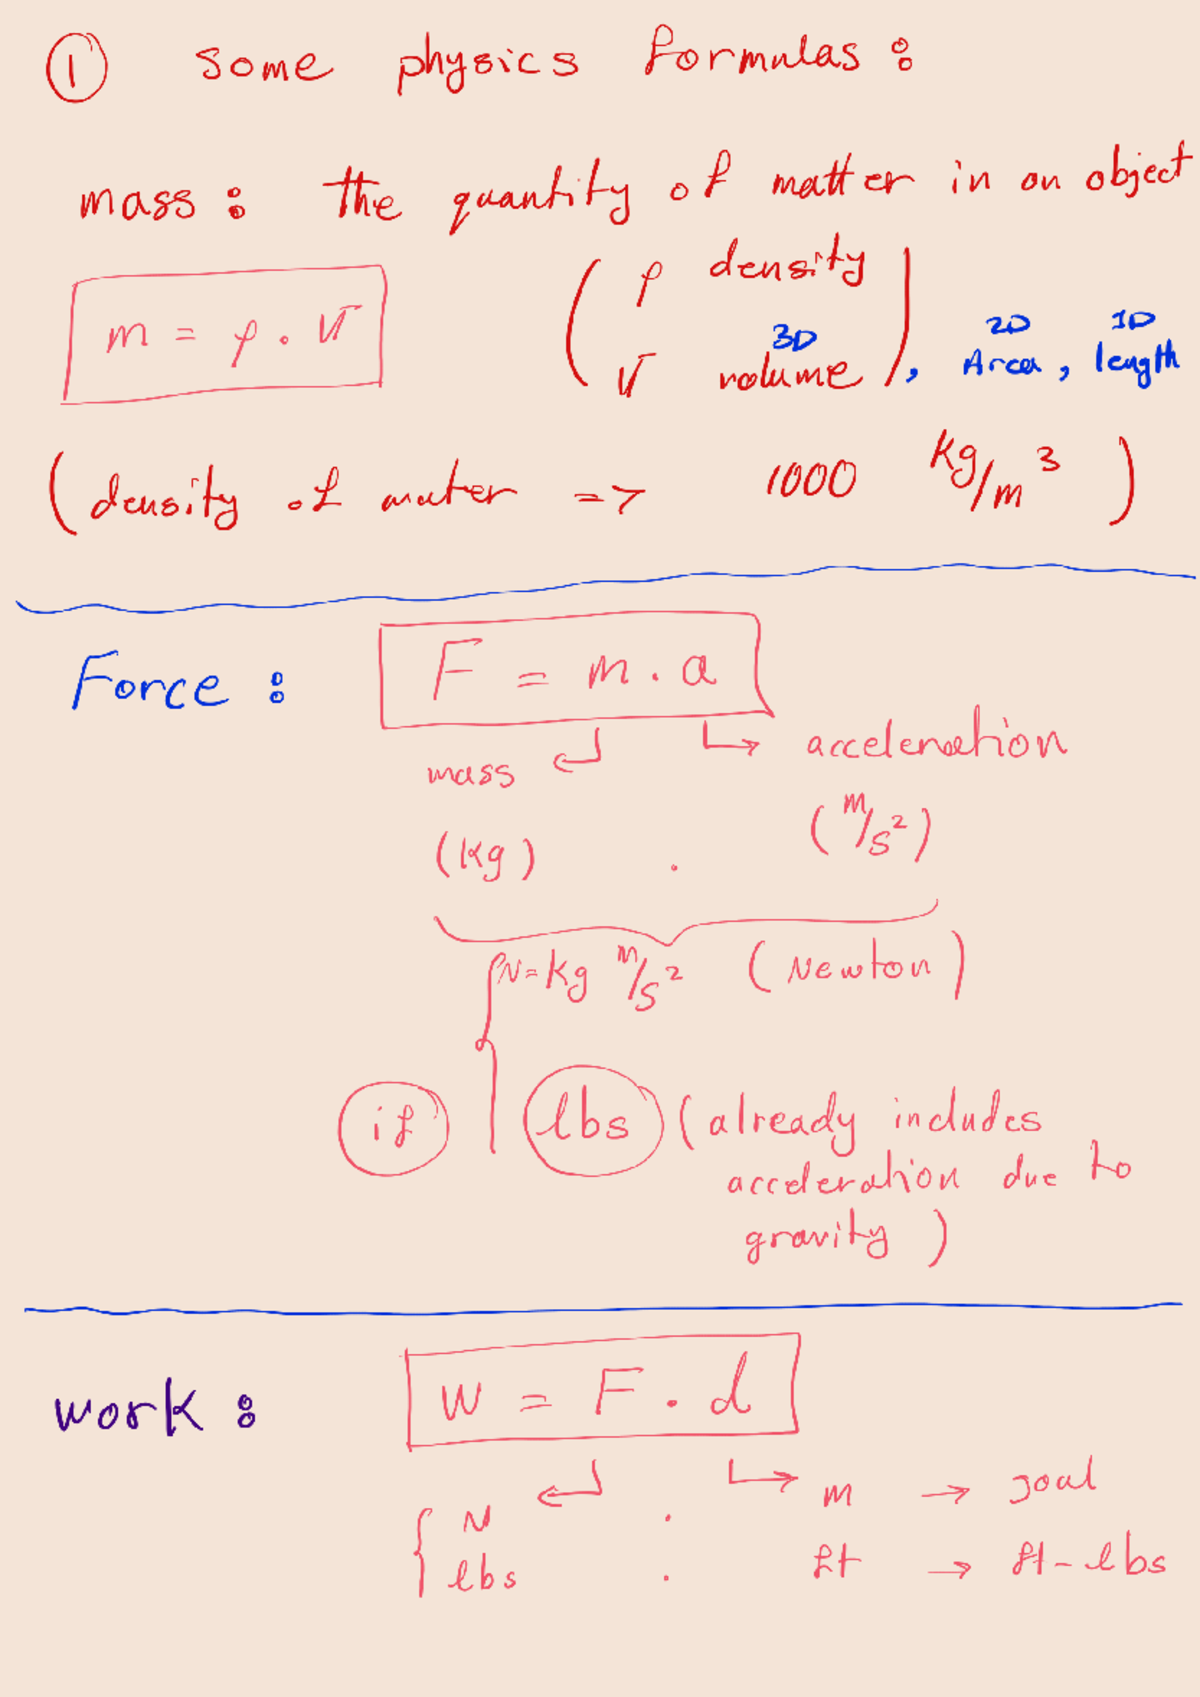 ① Some physics formulas :
mass : the quantity of matter in an object
m = ρ . V
( ρ density
3D 2D 1D
V volume ) , Area , length
( density of water => 1000 kg/m³ )
Force : F = m . a
mass acceleration
(kg) . (m/s²)
N = kg m/s² (Newton)
if lbs (already includes
acceleration due to
gravity )
work : W = F . d
N . m → Joal
lbs . ft → ft - lbs